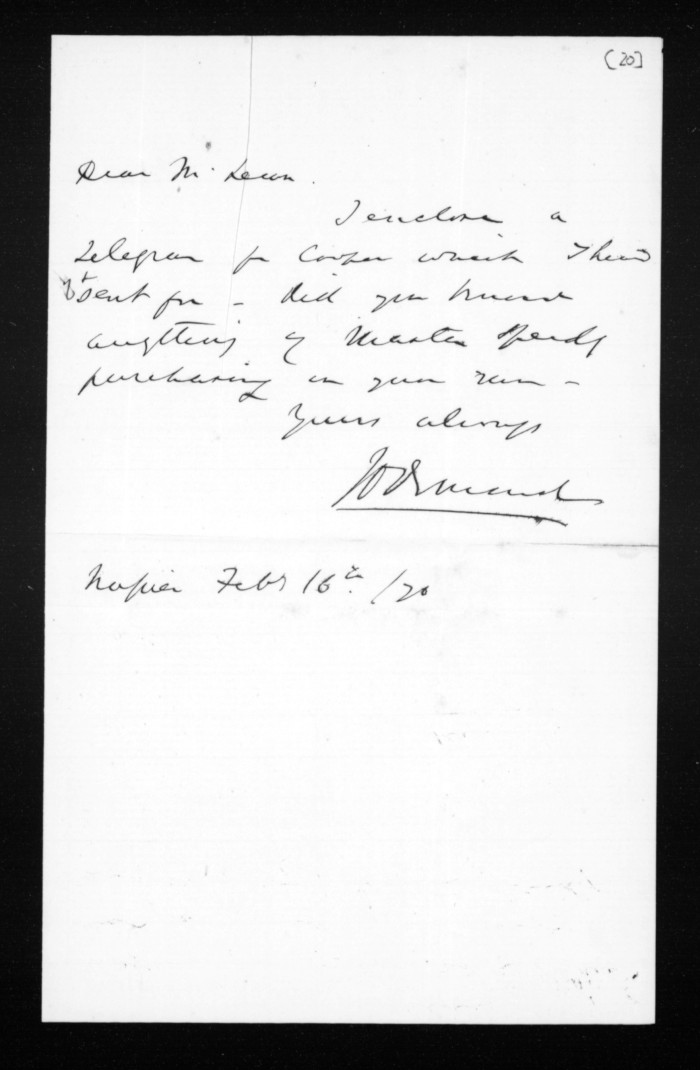 [20]
Dear McLean.
I enclose a
telegram for Cooper which I had
sent for - did you know
anything of Master
purchasing in your run -
Yours always
JD Ormond
Napier Feby 16th /70